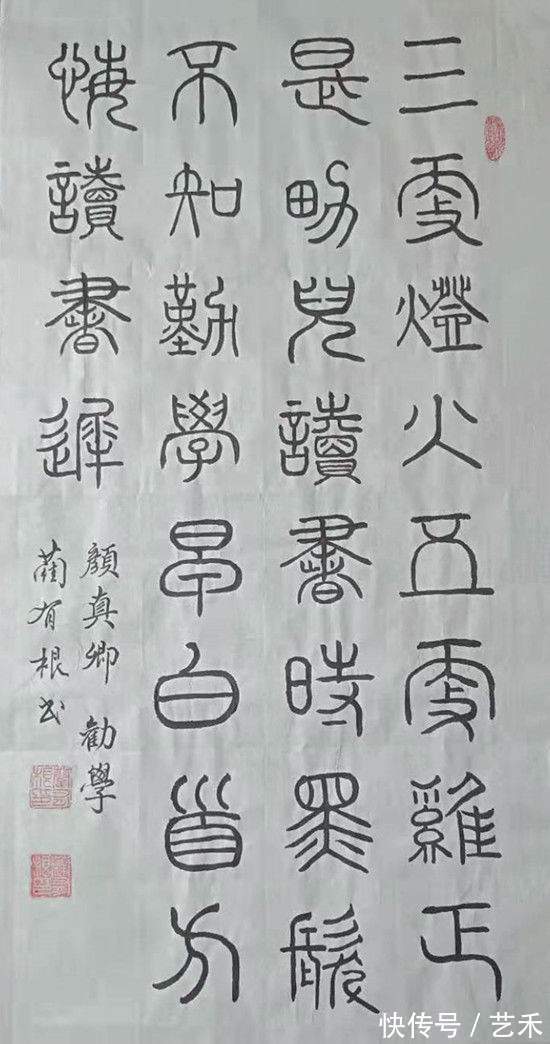 三更燈火五更雞正
是男兒讀書時黑髮
不知勤學早白首方
悔讀書遲
顏真卿 勸學
有根书
快传号 / 艺禾